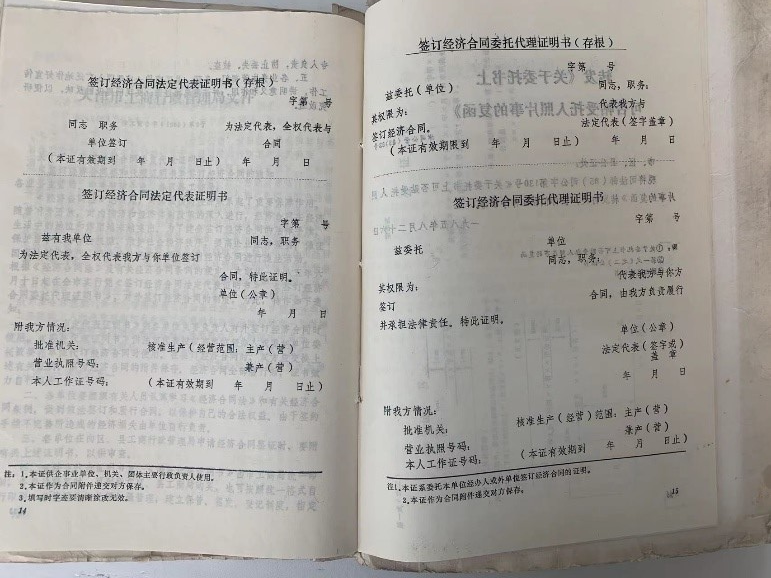 签订经济合同法定代表证明书（存根）
字第 号
同志 职务 为法定代表，全权代表与
单位签订 合同
（本证有效期到 年 月 日止） 年 月 日
签订经济合同法定代表证明书
字第 号
兹有我单位 同志，职务
为法定代表，全权代表我方与你单位签订
合同，特此证明。
单位（公章）
年 月 日
附我方情况：
批准机关： 核准生产（经营范围：主产（营）
营业执照号码： 兼产（营）
本人工作证号码： （本证有效期到 年 月 日止）
注：1.本证供企事业单位、机关、团体主要行政负责人使用。
2.本证作为合同附件递交对方保存。
3.填写时字迹要清晰涂改无效。
14
签订经济合同委托代理证明书（存根）
字第 号
兹委托（单位） 同志，职务：
其权限为： 代表我方与
签订经济合同。 法定代表（签字盖章）
（本证有效期限到 年 月 日止） 年 月 日
签订经济合同委托代理证明书
字第 号
兹委托 单位
同志，职务：
其权限为： 代表我方与你方
签订 合同，由我方负责履行
并承担法律责任。特此证明。
单位（公章）
法定代表（签字或）
盖 章
年 月 日
附我方情况：
批准机关： 核准生产（经营）范围：主产（营）
营业执照号码： 兼产（营）
本人工作证号码： （本证有效期到 年 月 日止）
注1.本证系委托本单位经办人或外单位签订经济合同的证明。
2.本证作为合同附件递交对方保存。
15